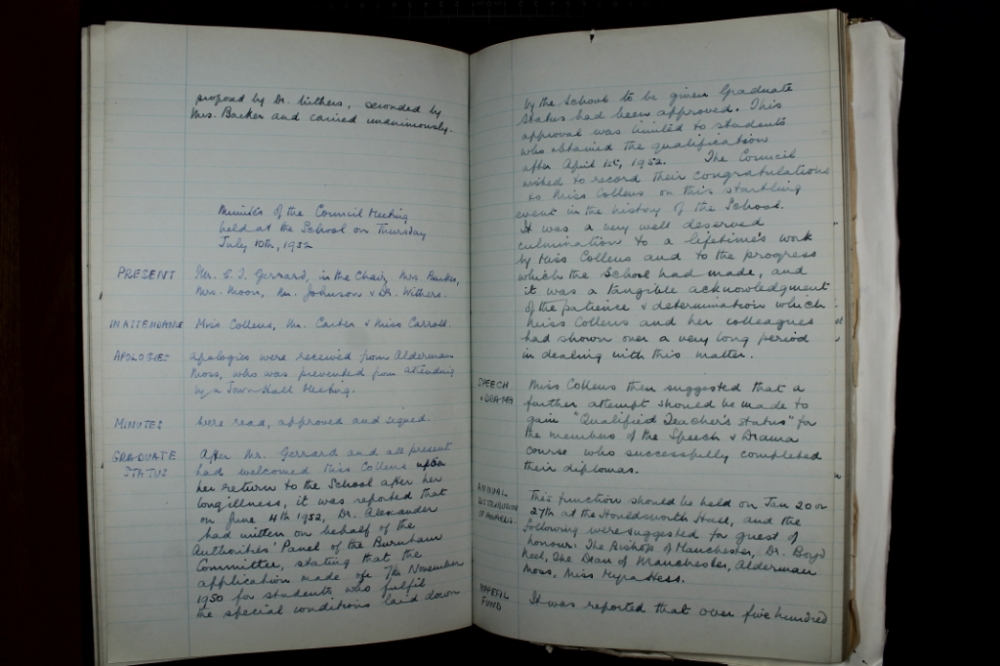 proposed by Dr. Withers, seconded by
Mrs. Barker and carried unanimously.
Minutes of the Council Meeting
held at the School on Thursday
July 10th, 1952
PRESENT Mr. E. J. Gerrard, in the Chair, Mrs. Barker,
Mrs. Moon, Mr. Johnson & Dr. Withers.
IN ATTENDANCE Miss Collens, Mr. Carter & Miss Carroll.
APOLOGIES apologies were received from Alderman
Moss, who was prevented from attending
by a Town Hall Meeting.
MINUTES were read, approved and signed.
GRADUATE STATUS After Mr. Gerrard and all present
had welcomed Miss Collens upon
her return to the School after her
long illness, it was reported that
on June 4th 1952, Dr. Alexander
had written on behalf of the
Authorities' Panel of the Burnham
Committee, stating that the
application made on 7th November
1950 for students who fulfil
the special conditions laid down
by the School to be given Graduate
Status had been approved. This
approval was limited to students
who obtained the qualification
after April 1st, 1952. The Council
wished to record their congratulations
to Miss Collens on this startling
event in the history of the School.
It was a very well deserved
culmination to a lifetime's work
by Miss Collens and to the progress
which the School had made, and
it was a tangible acknowledgment
of the patience & determination which
Miss Collens and her colleagues
had shown over a very long period
in dealing with this matter.
SPEECH & DRAMA Miss Collens then suggested that a
further attempt should be made to
gain "Qualified Teacher's Status" for
the members of the Speech & Drama
course who successfully completed
their diplomas.
ANNUAL DISTRIBUTION OF AWARDS This function should be held on Jan 20 or
27th at the Houldsworth Hall, and the
following were suggested for guest of
honour: The Bishop of Manchester, Dr. Boyd
Neel, The Dean of Manchester, Alderman
Moss, Miss Myra Hess.
FUND It was reported that over five hundred